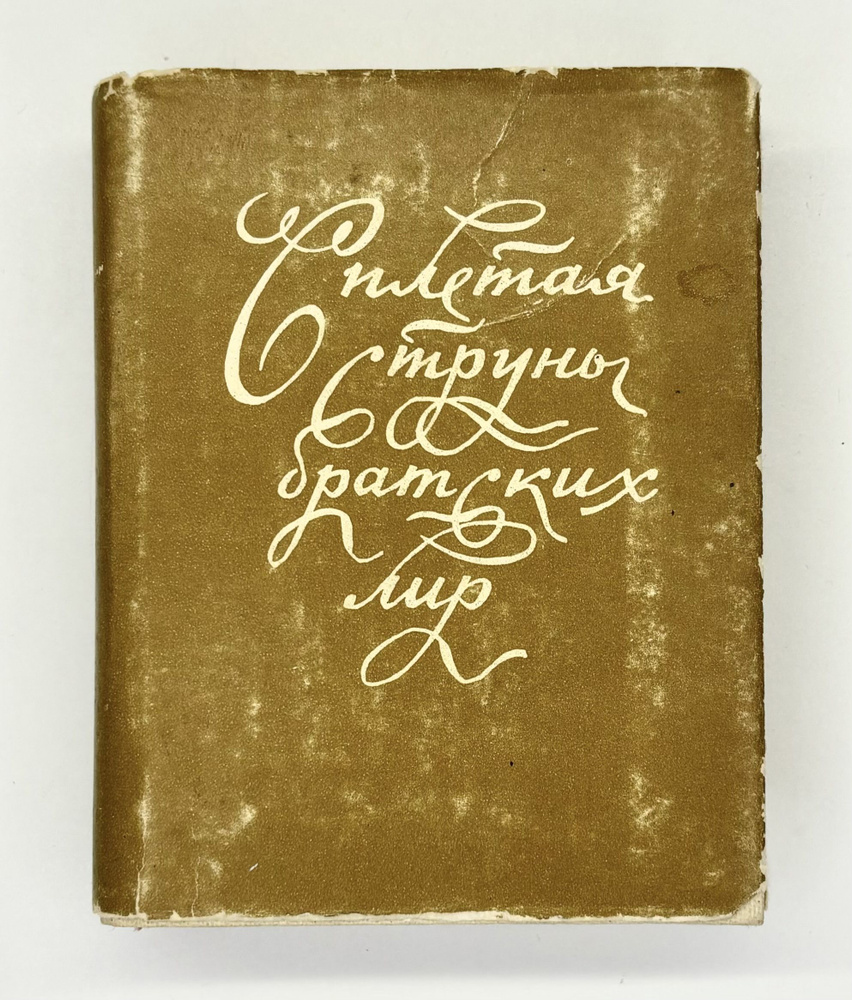 Сплетая
струны
братских
лир